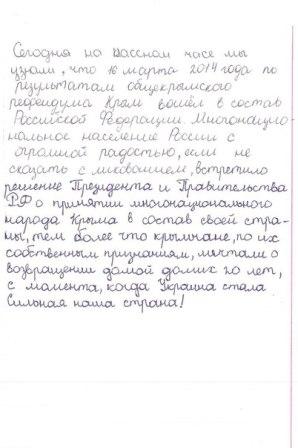 Сегодня на классном часе мы
узнали, что 16 марта 2014 года по
результатам общекрымского
референдума Крым вошёл в состав
Российской Федерации. Многонацио-
нальное население России с
огромной радостью, если не
сказать с ликованием, встретило
решение Президента и Правительства
РФ о принятии многонационального
народа Крыма в состав своей стра-
ны, тем более что крымчане, по их
собственным признаниям, мечтали о
возвращении домой долгих 20 лет,
с момента, когда Украина стала
Сильная наша страна!